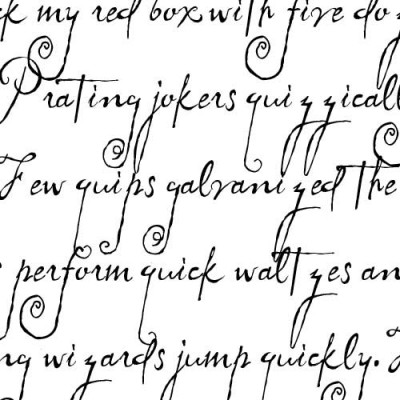 my red box with five do
Prating jokers quizzical
Few quips galvanized the
perform quick waltzes an
wizards jump quickly.